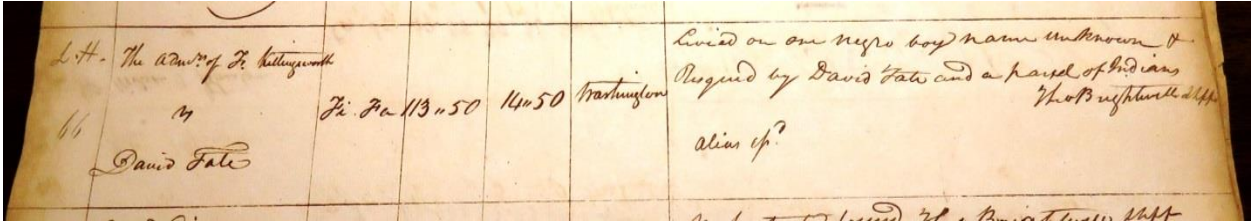 L.H.
66
The Admrs of Fr Killingsworth
v
David Tate
Fi. Fa
113"50
14"50
Washington
Levied on one negro boy name unknown &
Resqued by David Tate and a parsel of Indians
Tho Brightwell Shff
alias isd